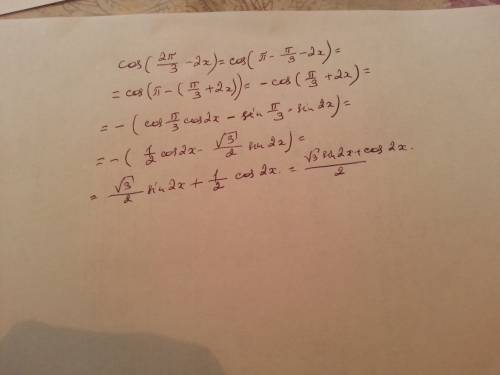 cos(2π/3 - 2x) = cos(π - π/3 - 2x) =
= cos(π - (π/3 + 2x)) = - cos(π/3 + 2x) =
= - (cos π/3 cos2x - sin π/3 · sin 2x) =
= - (1/2 cos2x - √3/2 sin 2x) =
= √3/2 sin 2x + 1/2 cos 2x. = √3 sin 2x + cos 2x. / 2